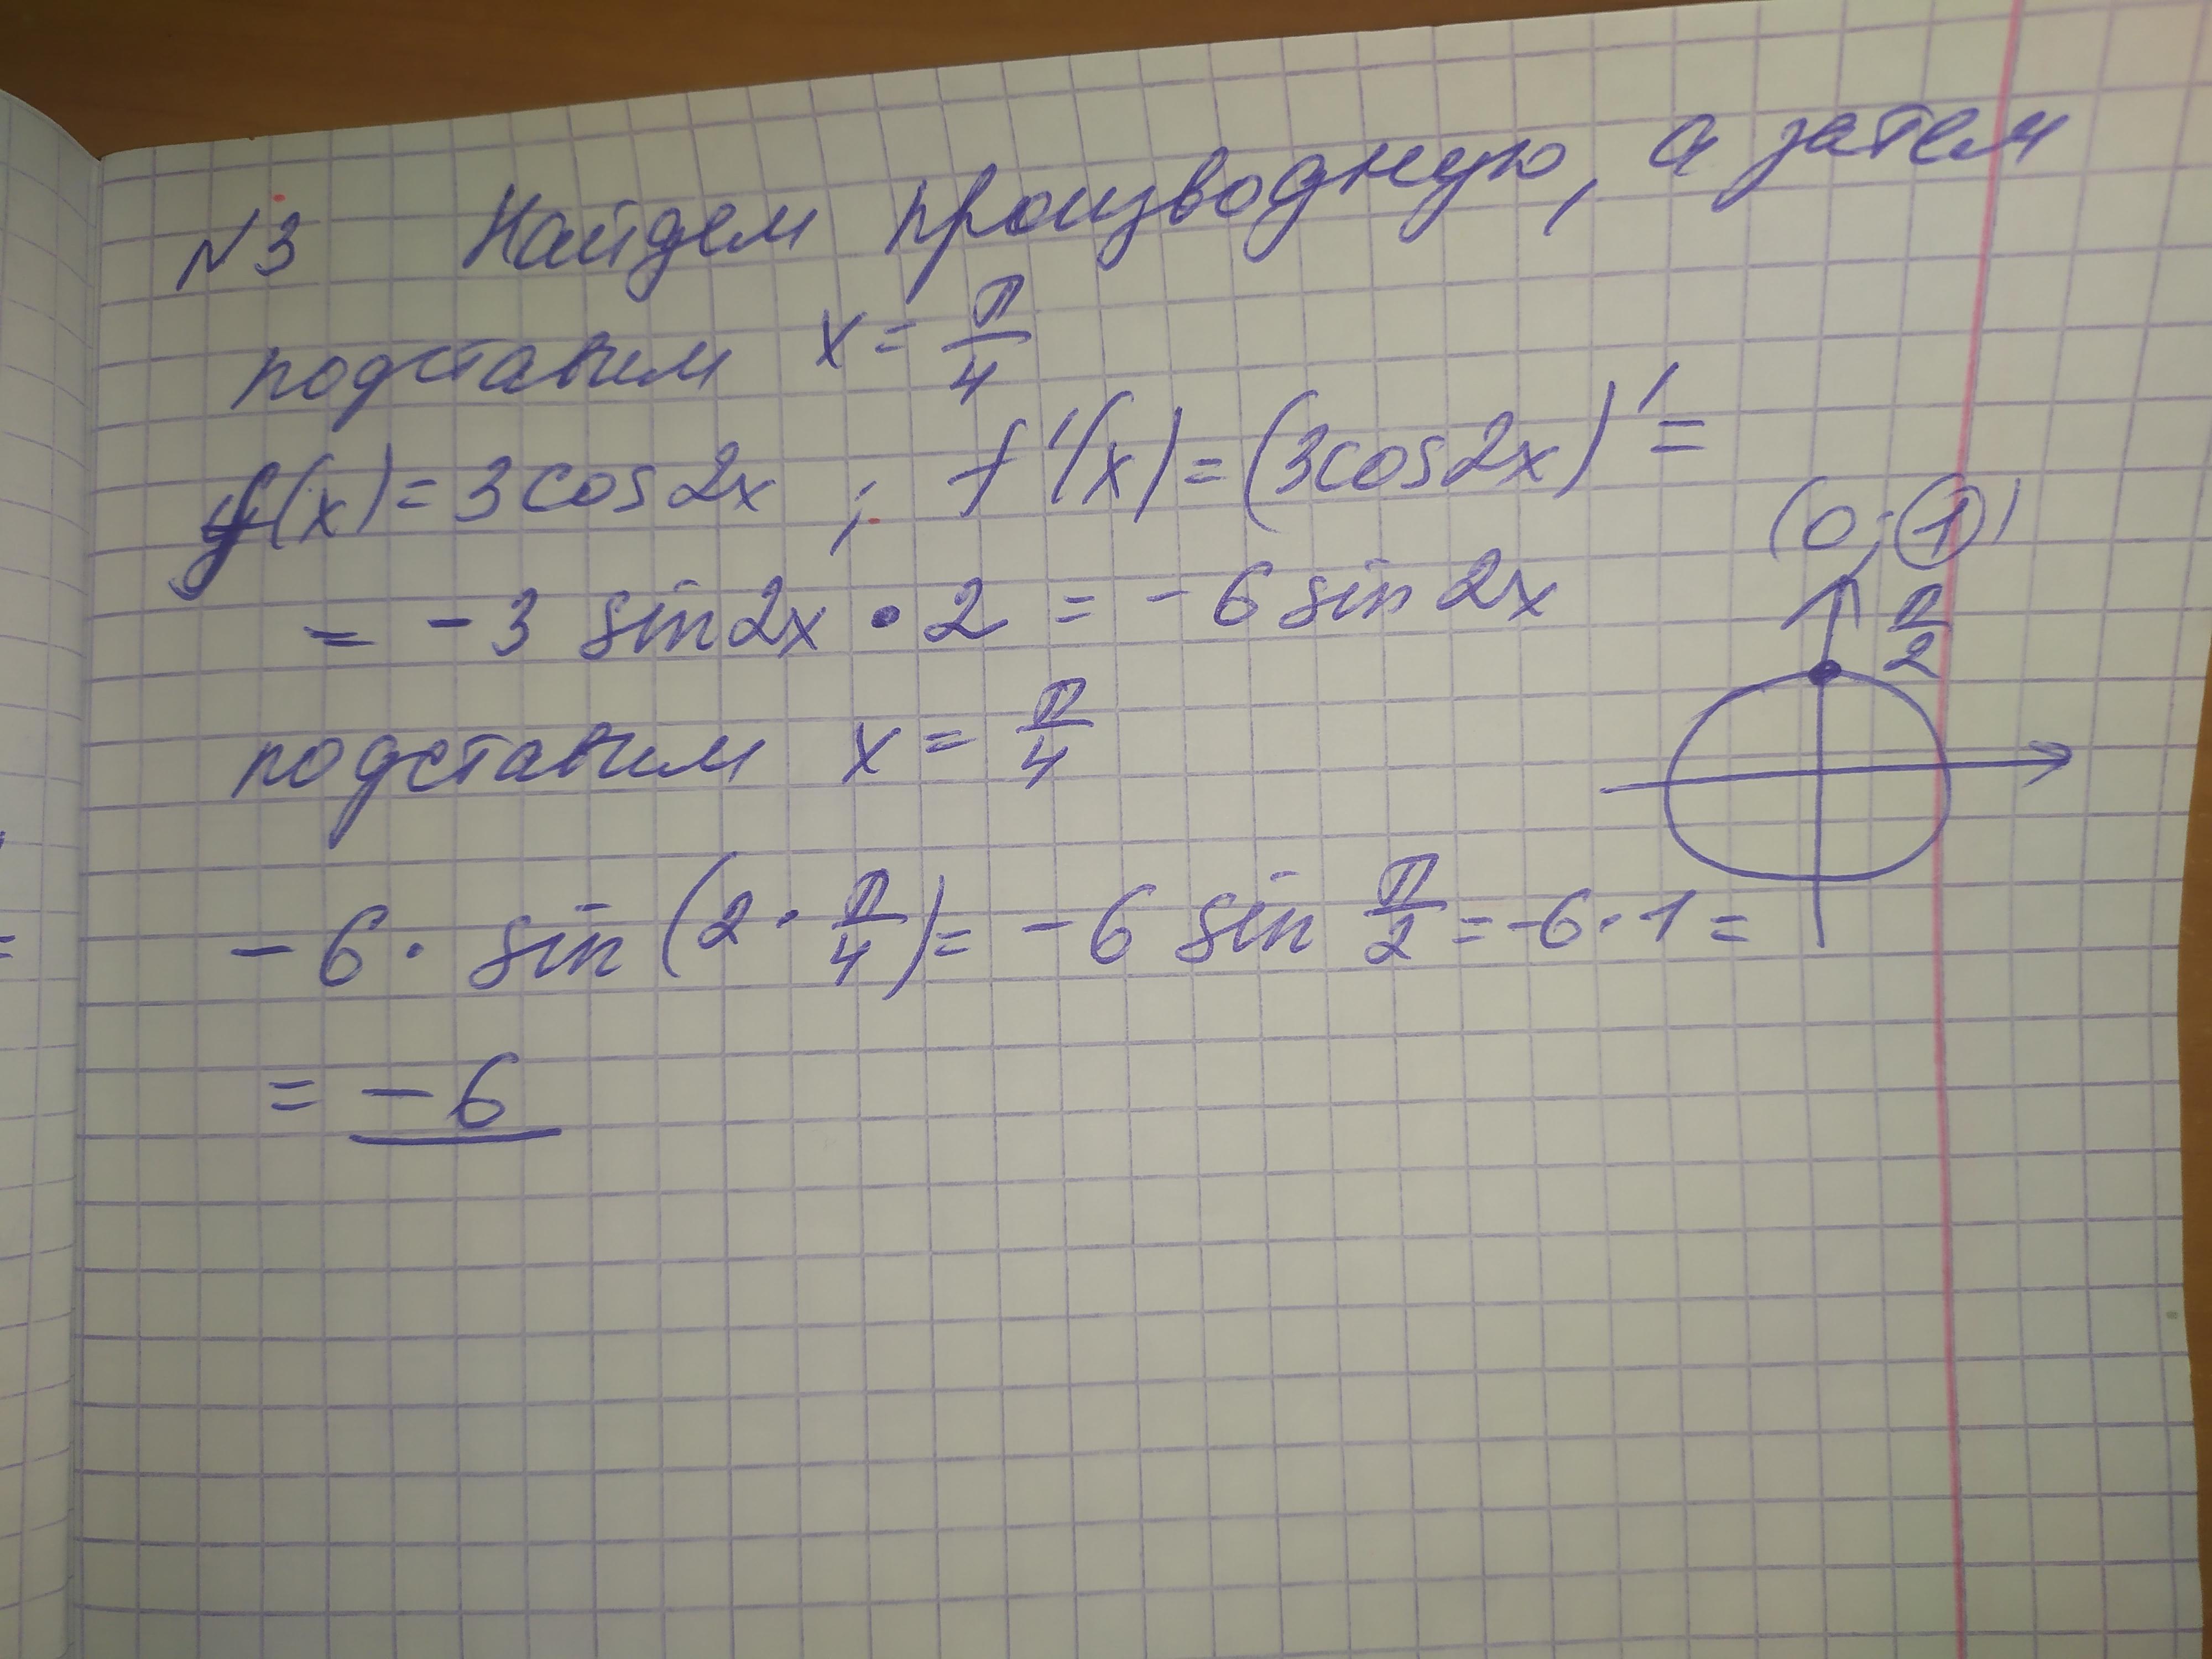 №3 Найдем производную, а затем
подставим x = π/4
f(x) = 3cos2x ; f'(x) = (3cos2x)' =
(0; 1)
= -3 sin2x • 2 = -6 sin 2x
π/2
подставим x = π/4
-6 · sin (2 · π/4) = -6 sin π/2 = -6 · 1 =
= -6